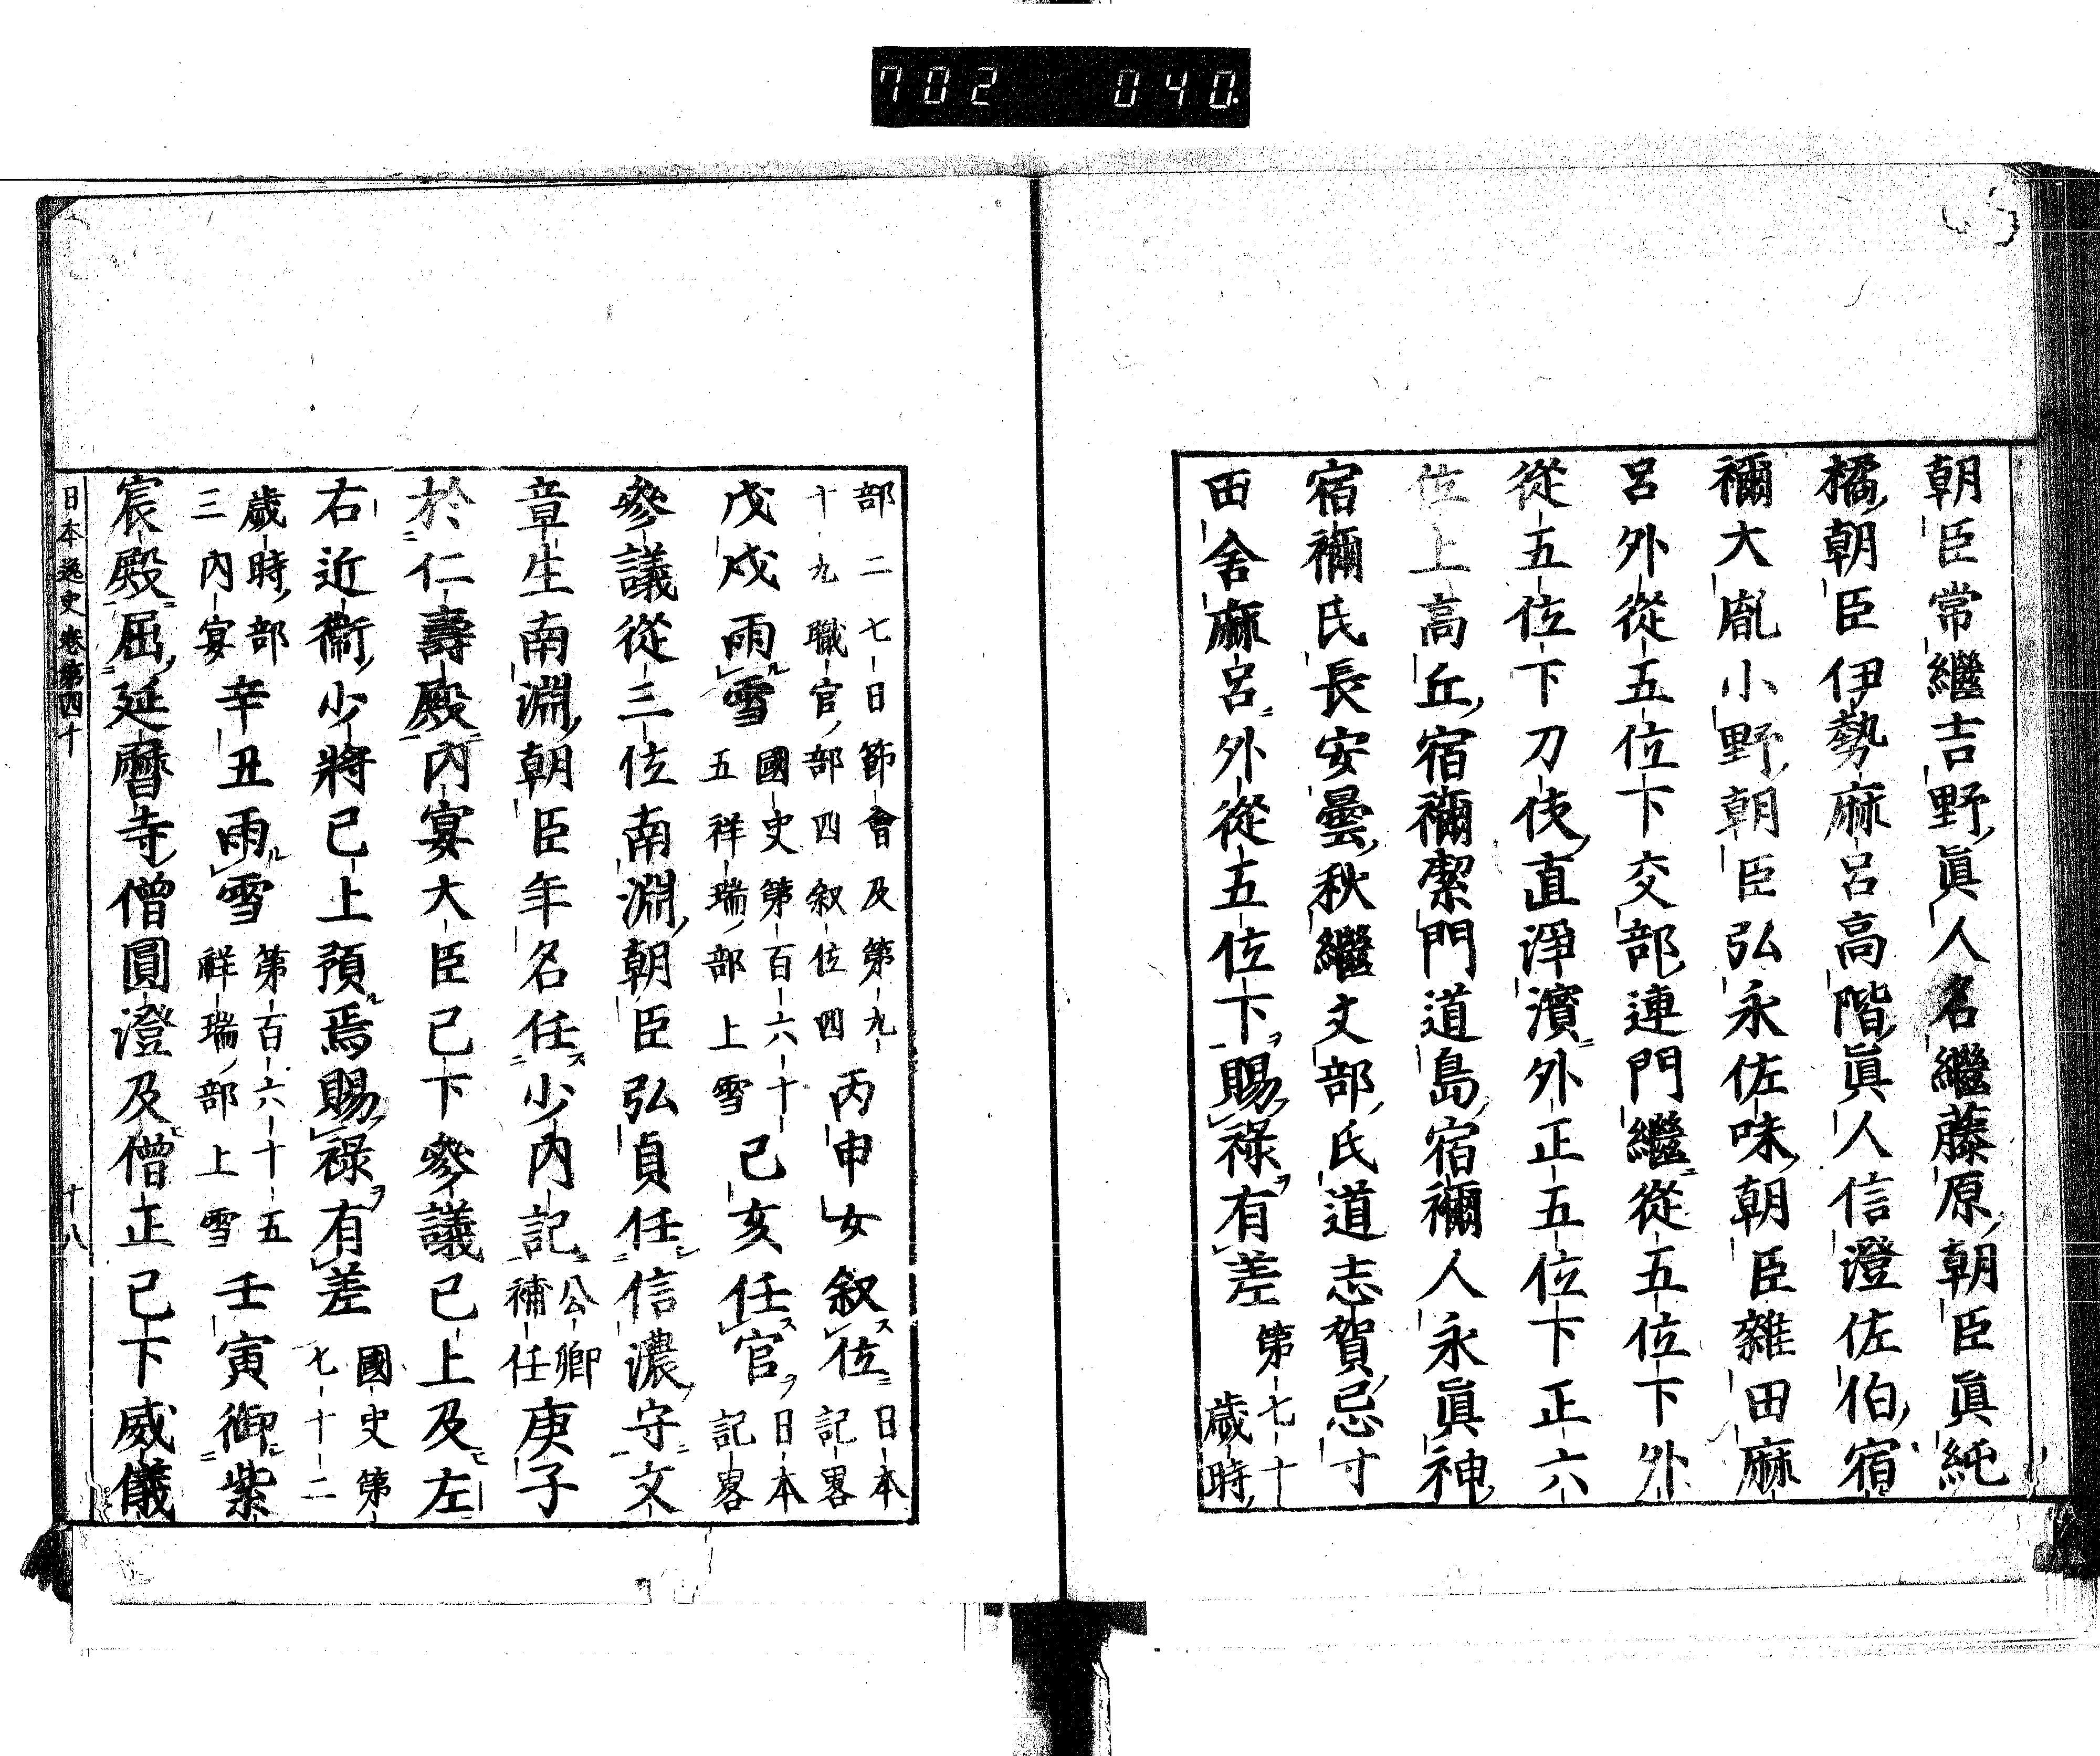 702 040
朝臣常繼吉野眞人名繼藤原朝臣眞純
橘朝臣伊勢麻呂高階眞人信澄佐伯宿
禰大胤小野朝臣弘永佐味朝臣雜田麻
呂外從五位下交部連門繼從五位下外
從五位下刀伎直淨濱外正五位下正六
位上高丘宿禰潔門道島宿禰人永眞神
宿禰氏長安曇秋繼文部氏道志賀忌寸
田舍麻呂外從五位下賜祿有差第七十
歲時
部二七日節會及第九
十九職官部四叙位四丙申女叙位日本
記畧
戊戌雨雪國史第百六十
五祥瑞部上雪己亥任官日本
記畧
參議從三位南淵朝臣弘貞任信濃守文
章生南淵朝臣年名任少內記公卿
補任庚子
於仁壽殿內宴大臣已下參議已上及左
右近衞少將已上預焉賜祿有差國史第
七十二
歲時部
三內宴辛丑雨雪第百六十五
祥瑞部上雪壬寅御紫
宸殿屈延曆寺僧圓澄及僧正已下威儀
日本逸史卷第四十 十八